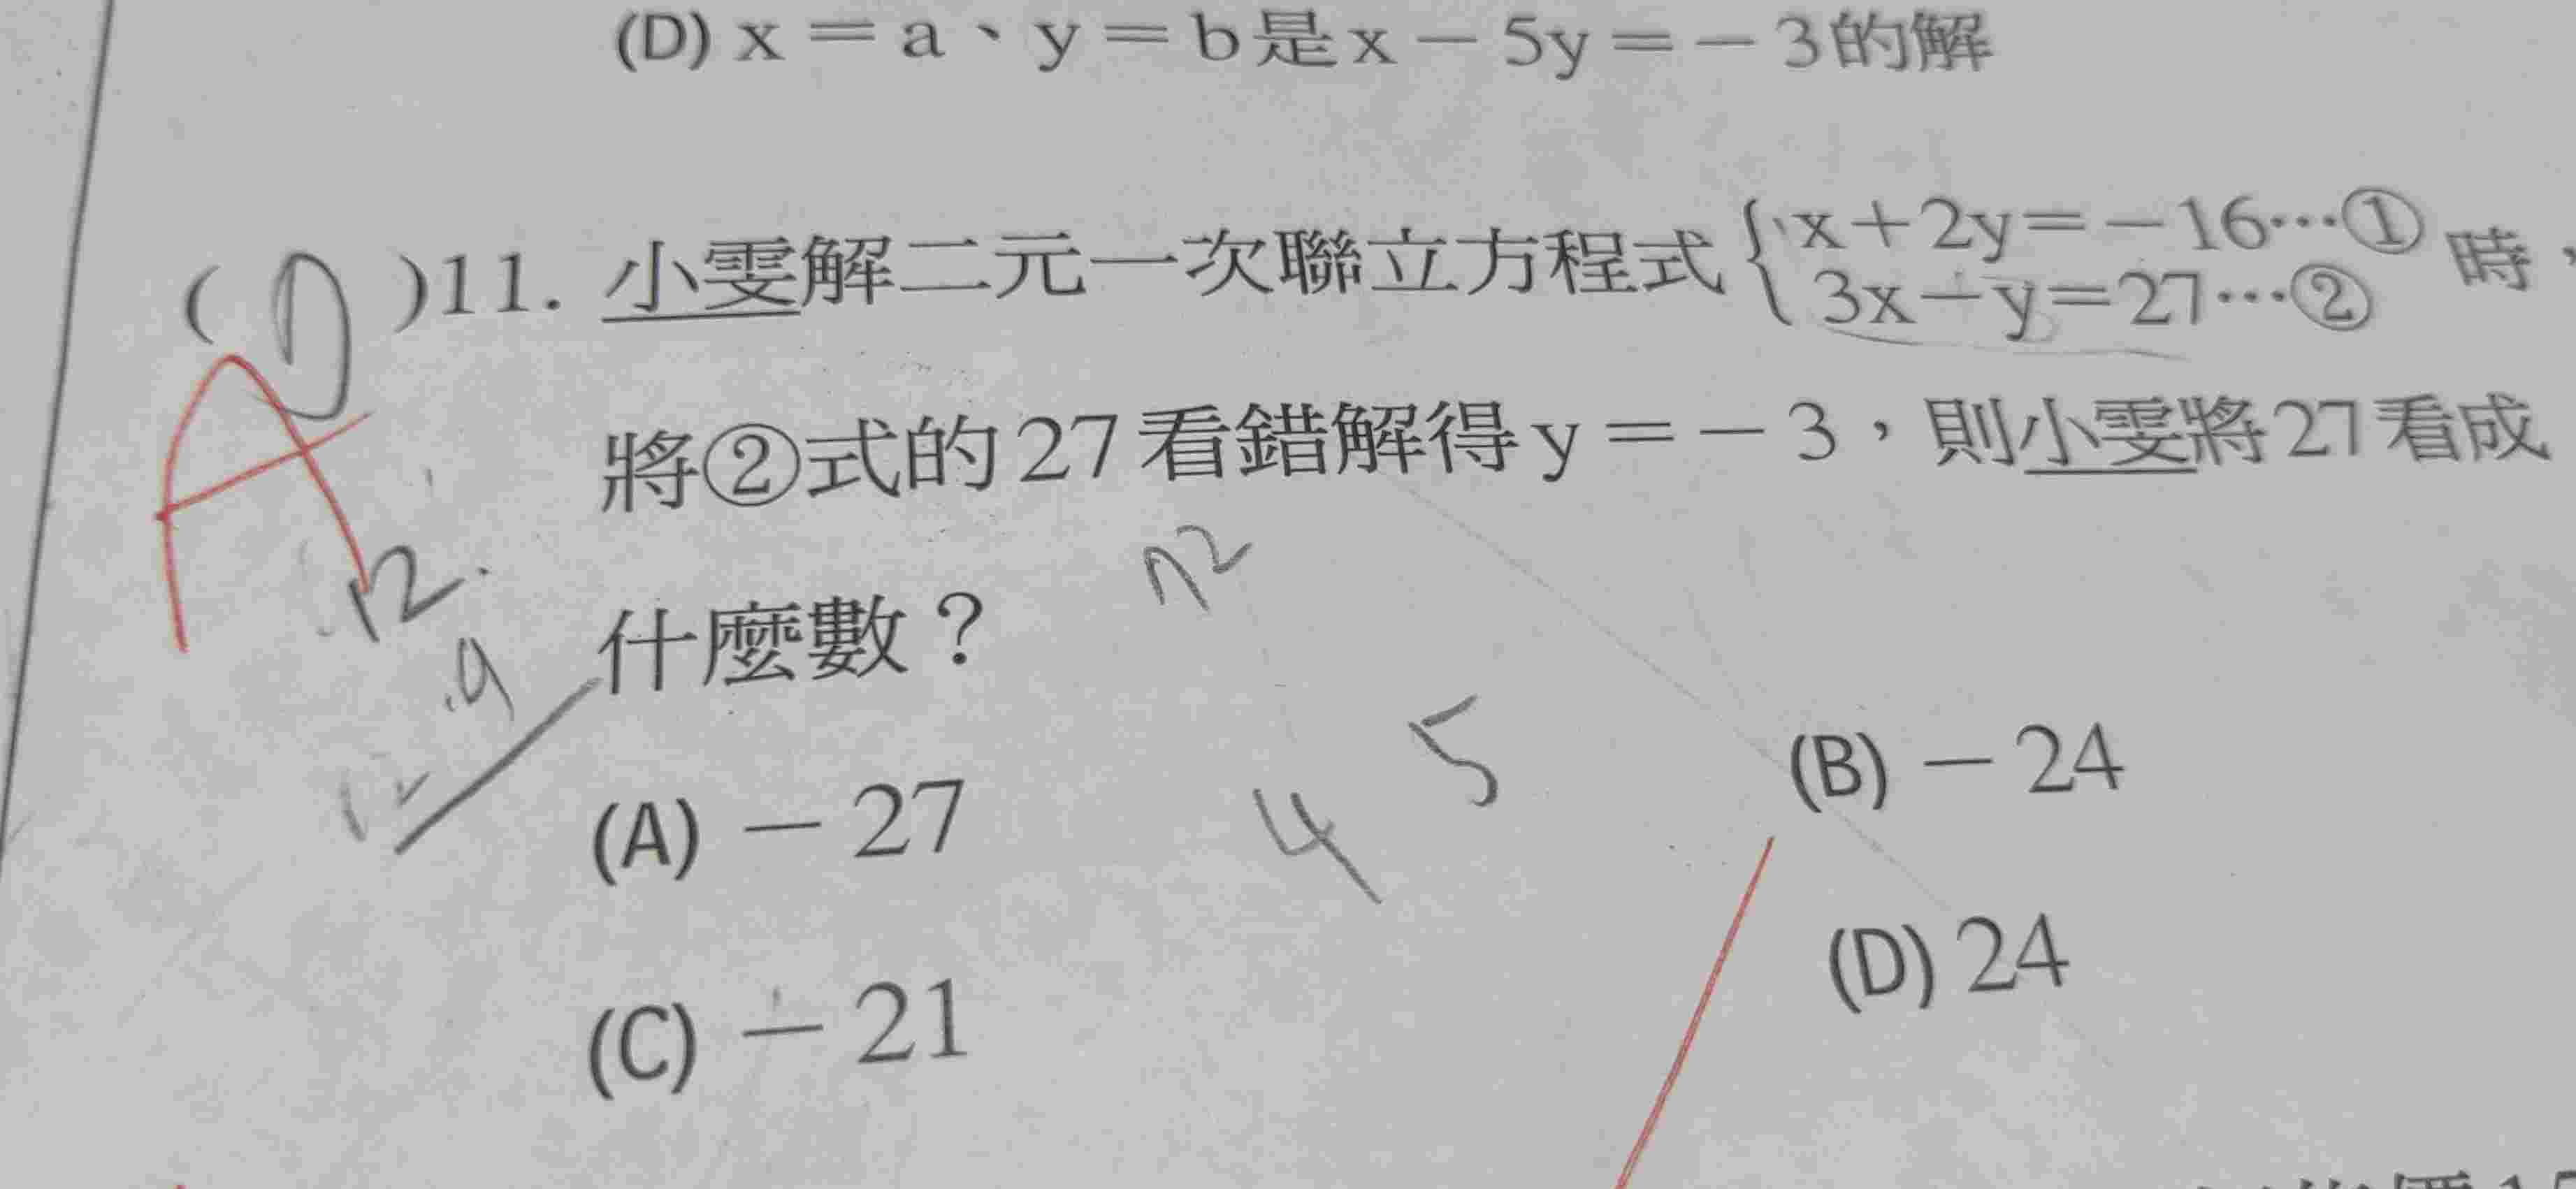 (D) x＝a、y＝b是x－5y＝－3的解
( D )11. 小雯解二元一次聯立方程式{x＋2y＝－16…①
3x－y＝27…② 時，
A
將②式的27看錯解得y＝－3，則小雯將27看成
12
什麼數？
9
(A) －27
4 5
(B) －24
(C) －21
(D) 24